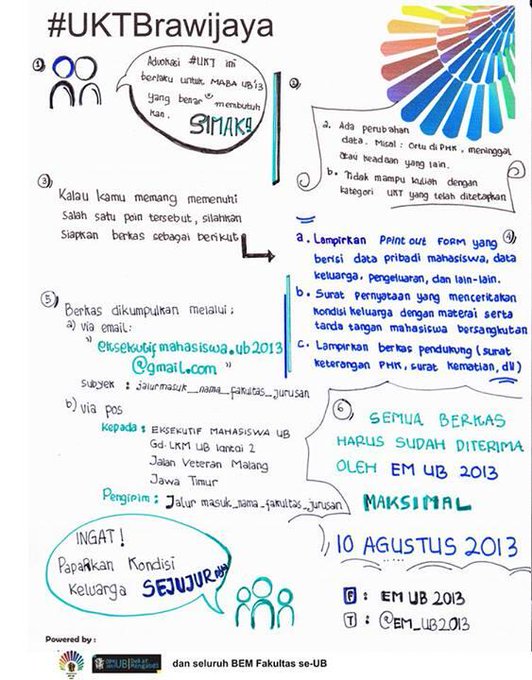 #UKTBrawijaya
1
Advokasi #UKT ini
berlaku untuk MABA UB'13
yang benar² membutuh
kan.
SIMAK!
2
a. Ada perubahan
data. Misal : Ortu di PHK, meninggal
atau keadaan yang lain.
b. Tidak mampu kuliah dengan
kategori UKT yang telah ditetapkan
3
Kalau kamu memang memenuhi
Salah satu poin tersebut, silahkan
Siapkan berkas sebagai berikut
4
a. Lampirkan Print out FORM yang
berisi data pribadi mahasiswa, data
keluarga, pengeluaran, dan lain-lain.
b. Surat Pernyataan yang menceritakan
kondisi keluarga dengan materai serta
tanda tangan mahasiswa bersangkutan
c. Lampirkan berkas pendukung (surat
keterangan PHK, surat kematian, dll)
5
Berkas dikumpulkan melalui :
a) via email:
"eksekutifmahasiswa.ub2013
@gmail.com"
subyek : jalurmasuk_nama_fakultas_jurusan
b) via pos
Kepada : EKSEKUTIF MAHASISWA UB
Gd. LKM UB lantai 2
Jalan Veteran Malang
Jawa Timur
Pengirim : Jalur masuk_nama_fakultas_jurusan
6
SEMUA BERKAS
HARUS SUDAH DITERIMA
OLEH EM UB 2013
MAKSIMAL
10 AGUSTUS 2013
INGAT!
Paparkan Kondisi
Keluarga SEJUJUR nya
F : EM UB 2013
T : @EM_UB2013
Powered by :
dan seluruh BEM Fakultas se-UB